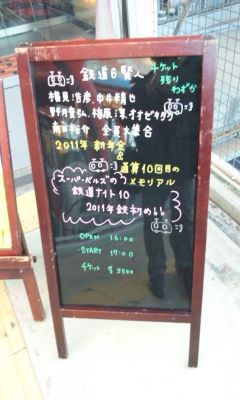 鉄道6賢人
チケット
残り
わずか
横見浩彦、中井精也
野月貴弘、梅原淳、オオゼキタク
南田裕介 全員大集合
2011年 新年会
&
通算10回目の
スーパーベルズの メモリアル
鉄道ナイト10
2011年鉄初め!!
OPEN 16:00
START 17:00
チケット ¥3500